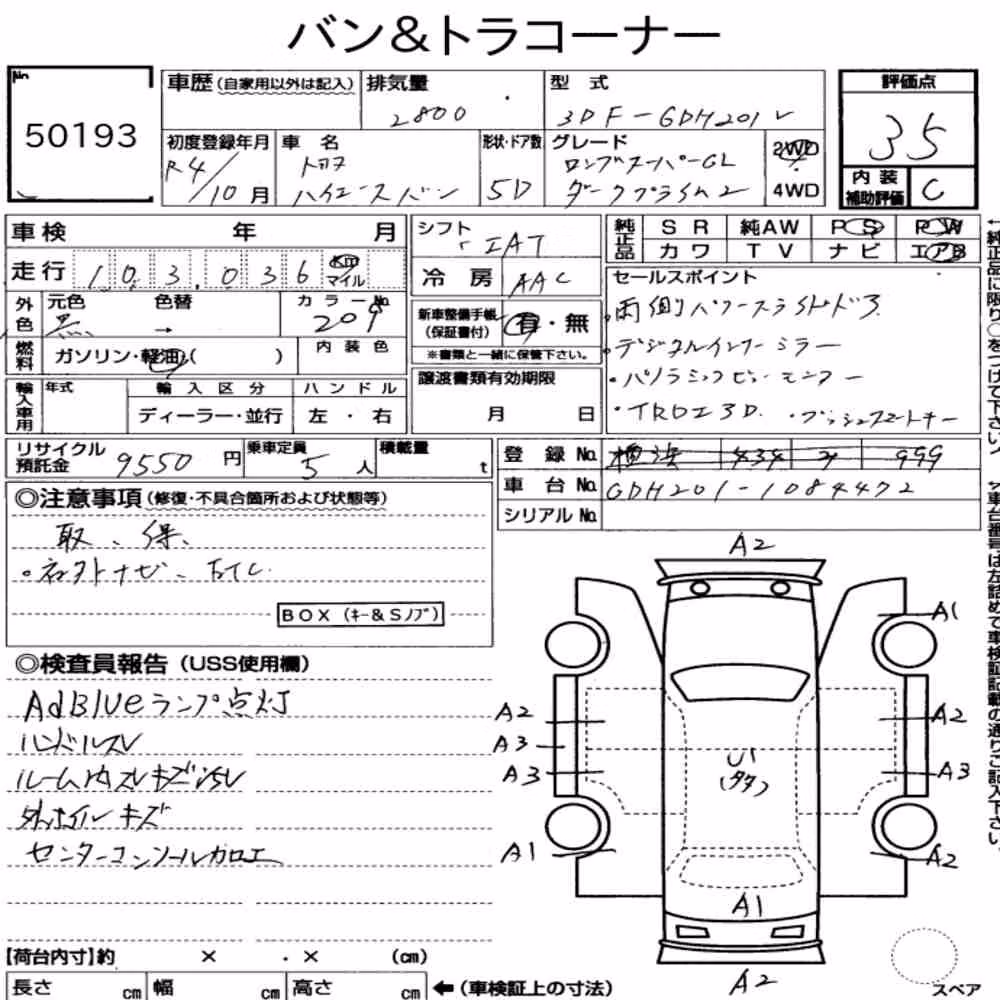 バン&トラコーナー
No.
50193
車歴(自家用以外は記入)
排気量
2800
型 式
3DF-GDH201V
評価点
35
内装
補助評価
C
初度登録年月
R4/10月
車 名
トヨタ
ハイエースバン
形状・ドア数
5D
グレード
ロングスーパーGL
ダークプライム2
2WD
4WD
車検 年 月
走行 103,036 Km マイル
外色
元色
色替
カラーNo.
黒
→
209
燃料
ガソリン・軽油・( )
内装色
輸入車用
年式
輸入区分
ディーラー・並行
ハンドル
左・右
シフト
IAT
冷房
AAC
新車整備手帳
(保証書付)
有・無
※書類と一緒に保管下さい。
譲渡書類有効期限
月 日
純正品
SR 純AW PS PW
カワ TV ナビ エアB
セールスポイント
・両側パワースライドドア
・デジタルインナーミラー
・パノラミックビューモニター
・TRDエアロ. ・プッシュスタートキー
←純正品に限り〇をつけて下さい
リサイクル
預託金
9550円
乗車定員
5人
積載量
t
登録No.
434
999
車台No.
GDH201-1084472
シリアルNo.
◎注意事項(修復・不具合箇所および状態等)
取、保、
・社外ナビ、
BOX(キー&Sノブ)
◎検査員報告(USS使用欄)
AdBlueランプ点灯
ハンドルスレ
ルーム内スレキズ汚レ
外ホイルキズ
センターコンソールカロエ
A2
A1
A2
A2
A3
A3
A3
U1
(タタ)
A1
A2
A1
A2
スペア
↗車台番号は左詰めで車検証記載の通りご記入下さい。
【荷台内寸】約 × ・× (cm)
長さ cm 幅 cm 高さ cm ←(車検証上の寸法)